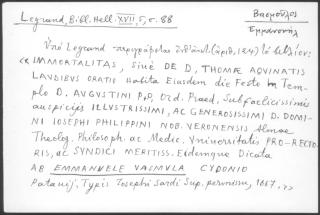 Legrand, Bibl. Hell. XVII, 5, σ. 88
Βασμοῦλος
Ἐμμανουήλ
Ὑπὸ Legrand περιγράφεται
"IMMORTALITAS, sivè DE D, THOMAE AQVINATIS
LAVDIBVS ORATIO habita Eiusdem die Festo in Tem-
plo D, AVGVSTINI P,P, Ord. Praed, Sub faelicissimis
auspicijs ILLVSTRISSIMI, AC GENEROSISSIMI D. DOMI-
NI IOSEPHI PHILIPPINI NOB. VERONENSIS Almae
Theolog, Philosoph. ac Medic. Vniversitatis PRO-RECTO-
RIS, ac SYNDICI MERITISS. Eidemque Dicata
AB EMMANVELE VASMVLA CYDONIO
Patavij, Typis Iosephi Sardi Sup. permissu, 1667,"